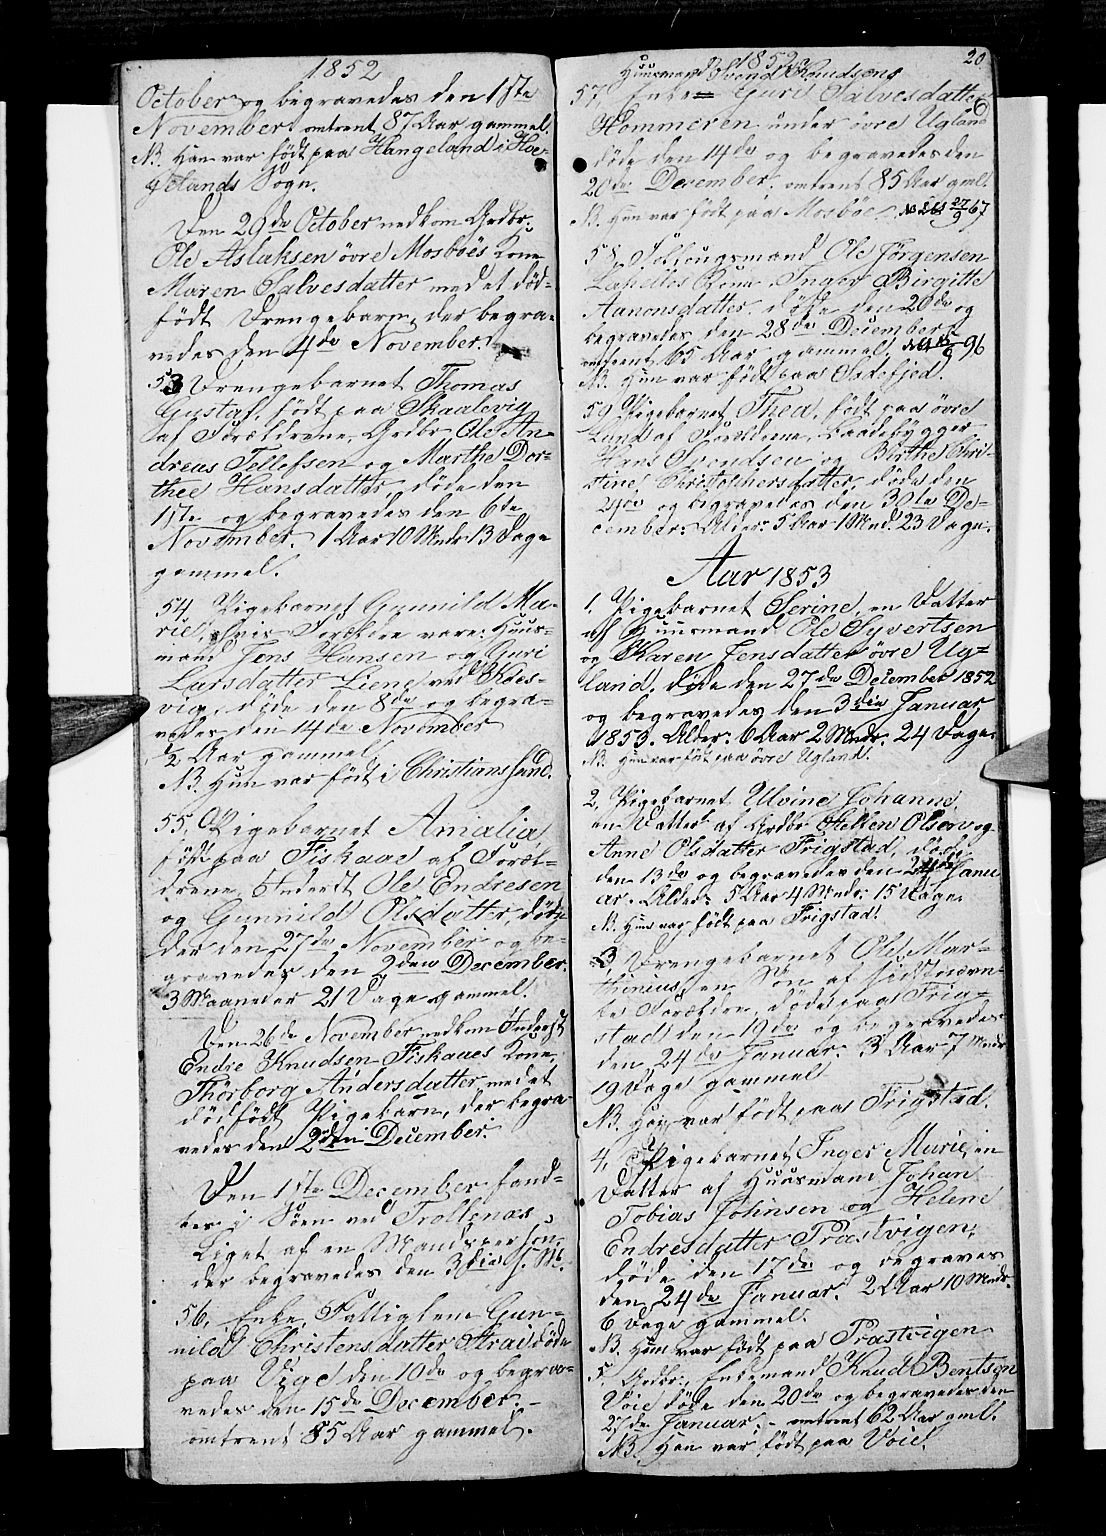 1852
October og begravedes den 1ste
November omtrent 87 Aar gammel.
NB. Han var født paa Hangeland i Hæ-
gelands Sogn.
Den 29de October nedkom Grdbr.
Ole Aslaksen øvre Mosbøes Kone
Maren Salvesdatter med et død-
født Drengebarn, der begra-
vedes den 4de November.
53 Drengebarnet Thomas
Gustaf, født paa Skaalevig
af Forældrene, Grdbr. Ole An-
dreas Tellefsen og Marthe Dor-
thea Hansdatter, døde den
1ste og begravedes den 6te
November. 1 Aar 10 Mndr. 13 Dage
gammel.
54 Pigebarnet Gunnild Ma-
rie, hvis Forældre vare: Huus-
mand Jens Hansen og Guri
Larsdatter Liene ved Kors-
vig, døde den 8de og begra-
vedes den 14de November
1/2 Aar gammel
NB. Hun var født i Christianssand.
55, Pigebarnet Amalia,
født paa Fiskaae af Foræl-
drene, Inderst Ole Endresen
og Gunnild Olsdatter, døde
der den 27de November og be-
gravedes den 2den December.
3 Maaneder 21 Dage gammel.
Den 26de November nedkom Inderst
Endre Knudsen Fiskaaes Kone,
Thorborg Andersdatter, med et
dødfødt Pigebarn, der begra-
vedes den 2den December.
Den 1ste December fand-
tes i Søen ved Trollenæs
Liget af en Mandsperson,
der begravedes den 3die s. M.
56, Enke, Fattiglem Gun-
nild Christensdatter Strai døde
paa Vige den 10de og begra-
vedes den 15de December. –
omtrent 85 Aar gammel.
1852
20
Huusmand Svend Knudsens
57, Enke Guri Salvesdatter
Hommeren under øvre Ugland
døde den 14de og begravedes den
20de December. omtrent 85 Aar gml.
NB. Hun var født paa Mosbøe. 27/9 67
58, Selveugsmand Ole Jørgensen
Kone Inger Birgitte
Aanonsdatter, døde den 20de og
begravedes den 28de December
omtrent 65 Aar gammel. 96
NB. Hun var født paa
59 Pigebarnet Thea, født paa øvre
Lund af Forældrene, Baadebygger
Hans Svendsen og Birthe Chri-
stine Christophersdatter, døde den
og begravedes den 30te De-
cember. Alder: 5 Aar 1 Mnd. 23 Dage.
Aar 1853
1, Pigebarnet Serine, en Datter
af Huusmand Ole Syvertsen
og Karen Jensdatter øvre Ug-
land, døde den 27de December 1852
og begravedes den 3die Januar
1853. Alder: 6 Aar 2 Mndr. 24 Dage.
NB. Hun var født paa øvre Ugland.
2, Pigebarnet Ulvine Johanne,
en Datter af Grdbr. Steffen Olsen og
Anne Olsdatter Frigstad, døde
den 13de og begravedes den Janu
ar. Alder: 5 Aar 4 Mndr. 15 Dage.
NB. Hun var født paa Frigstad.
3, Drengebarnet Ole Mar-
thinius, en Søn af sidstnævn-
te Forældre, døde paa Frig-
stad den 19de og begravedes
den 24de Januar. 3 Aar 7 Mndr
19 Dage gammel
NB. Han var født paa Frigstad.
4, Pigebarnet Inger Marie, en
Datter af Huusmand Johan
Tobias Johnsen og Helene
Endresdatter Præstvigen,
døde den 17de og begraves
den 24de Januar. 2 Aar 10 Mndr.
6 Dage gammel.
NB. Hun var født paa Præstvigen
5, Grdbr., Enkemand Knud Bentsen
Voie døde den 20de og begravedes den
27de Januar. – omtrent 62 Aar gml.
NB. Han var født paa Voie.